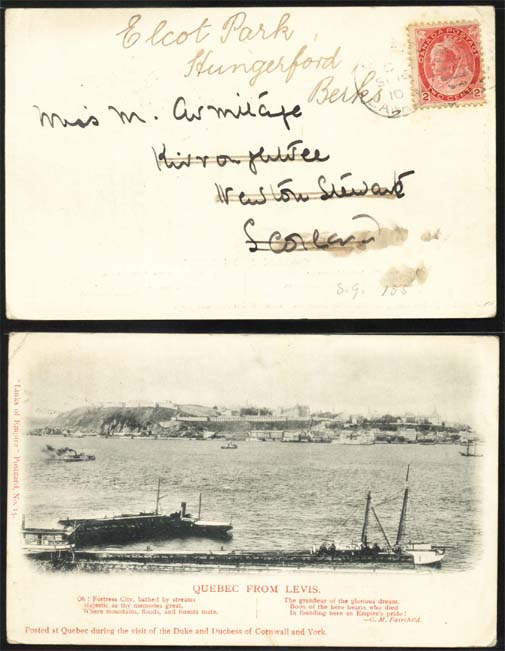 Elcot Park,
Hungerford
Berks
CANADA POSTAGE
2 TWO CENTS 2
Miss M. Armitage
Kirroughtree
Newton Stewart
Scotland
S.G. 155
"Links of Empire" Postcard, No. 15.
QUEBEC FROM LEVIS.
Oh! Fortress City, bathed by streams
Majestic as thy memories great,
Where mountains, floods, and forests mate,
The grandeur of the glorious dream,
Born of the hero hearts who died
In founding here an Empire's pride!
—G. M. Fairchild.
Posted at Quebec during the visit of the Duke and Duchess of Cornwall and York.